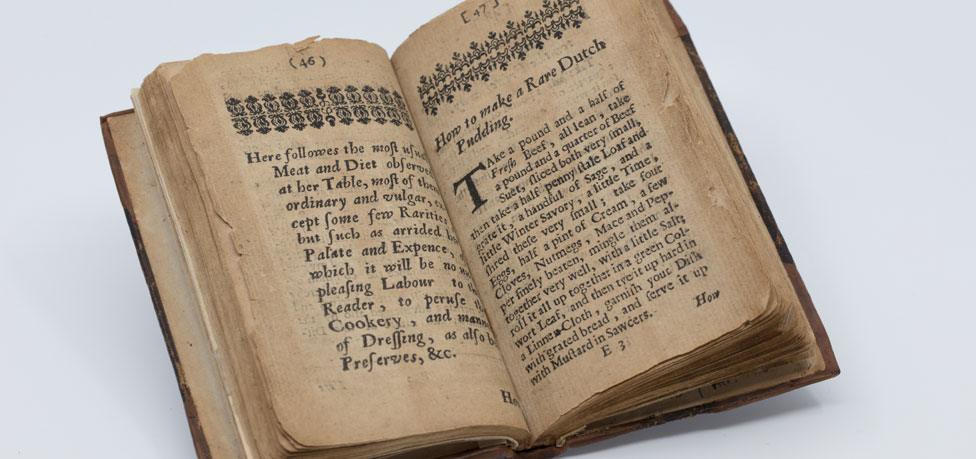 (46)
Here followes the most
Meat and Diet
at her Table, moſt of
ordinary and vulgar,
cept ſome few Rarities
but ſuch as arrided
Palate and Expence
which it will be no
pleaſing Labour to
Reader, to peruſe
Cookery, and
of Dreſſing, as alſo
Preſerves, &c.
[47]
How to make a Rare Dutch
Pudding.
TAke a pound and a half of
Freſh Beef, all lean, take
a pound and a quarter of Beef
Suet, ſliced both very ſmall,
then take a half penny ſtale Loaf and
grate it, a handful of Sage, and a
little Winter Savory, a little Time,
ſhred theſe very ſmall; take four
Eggs, half a pint of Cream, a few
Cloves, Nutmegs, Mace and Pep-
per finely beaten, mingle them al-
together very well, with a little Salt;
roll it all up together in a green Col-
wort Leaf, and then tye it up hard in
a Linnen-Cloth, garniſh your Diſh
with grated bread, and ſerve it up
with Muſtard in Sawcers.
E 3
How